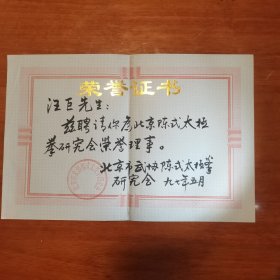 荣誉证书
汪巨先生：
兹聘请你为北京陈式太极
拳研究会荣誉理事。
北京市武协陈式太极拳
研究会 九七年五月